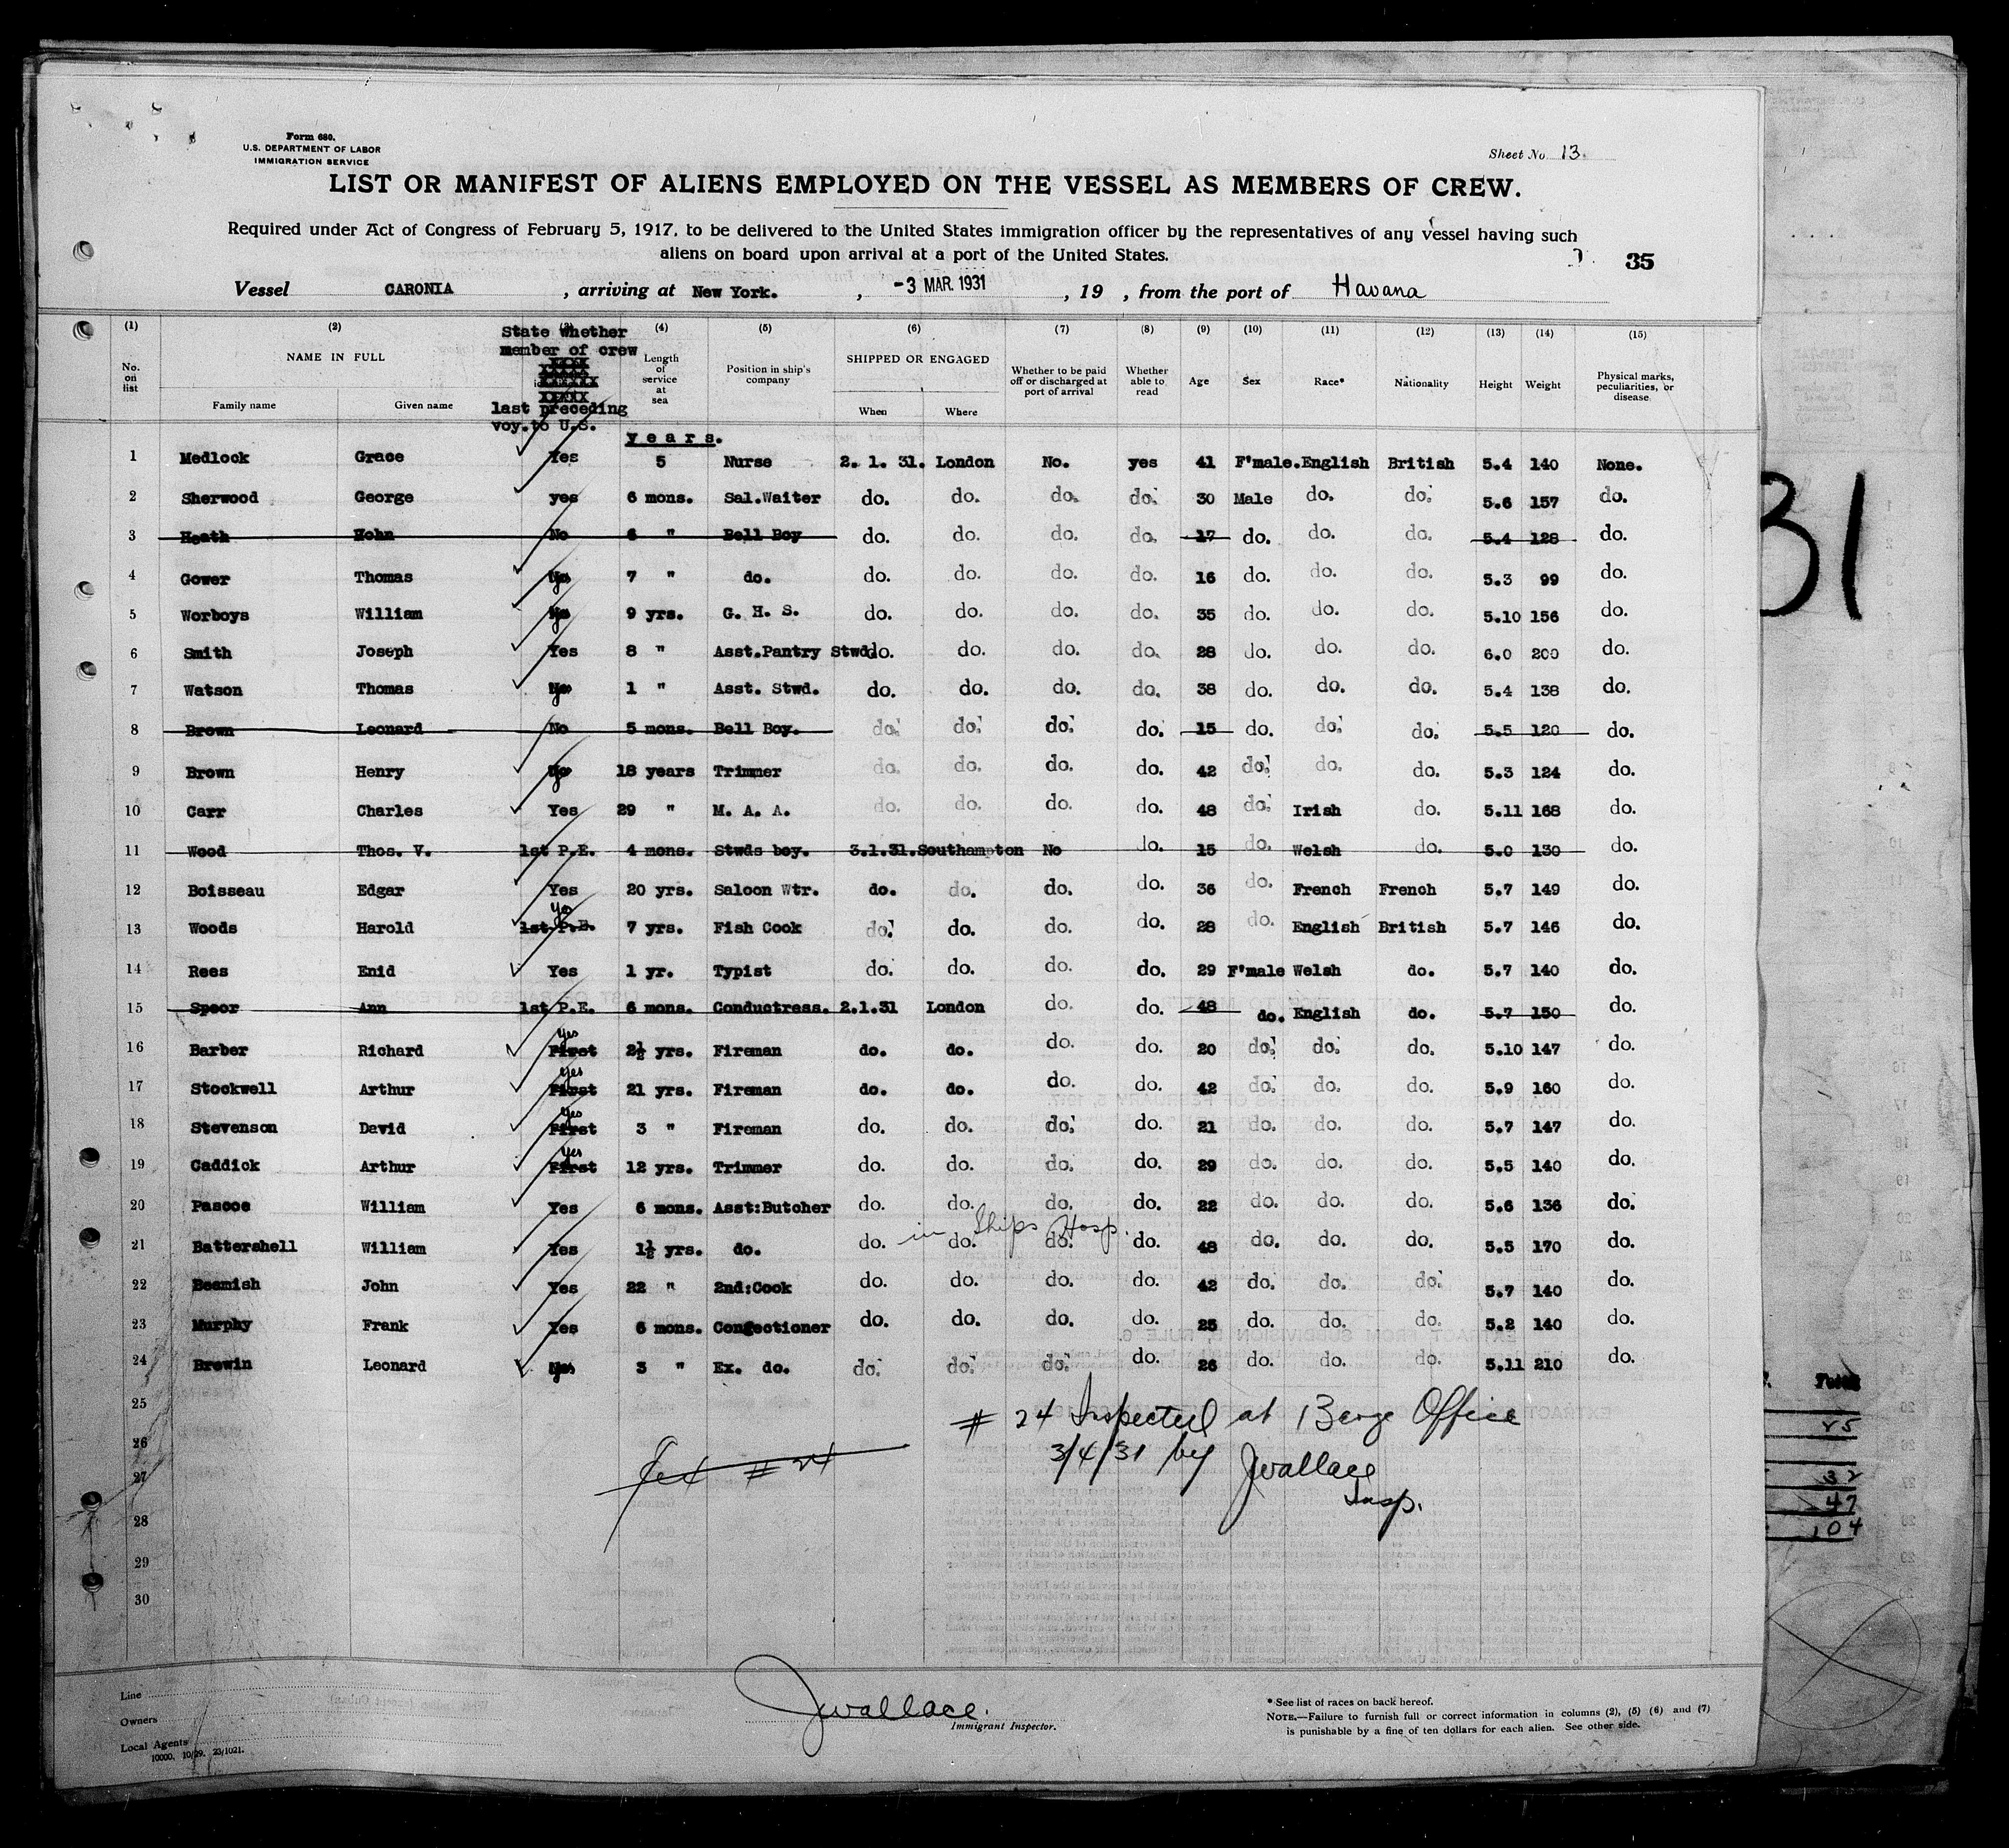 Form 680.
U.S. DEPARTMENT OF LABOR
IMMIGRATION SERVICE
Sheet No 13.
LIST OR MANIFEST OF ALIENS EMPLOYED ON THE VESSEL AS MEMBERS OF CREW.
Required under Act of Congress of February 5, 1917, to be delivered to the United States immigration officer by the representatives of any vessel having such
aliens on board upon arrival at a port of the United States.
35
Vessel CARONIA, arriving at New York. , -3 MAR. 1931, 19 , from the port of Havana
(1) (2) (3) (4) (5) (6) (7) (8) (9) (10) (11) (12) (13) (14) (15)
No. on list NAME IN FULL Family name Given name State whether member of crew last preceding voy. to U.S. Length of service at sea Position in ship's company SHIPPED OR ENGAGED When Where Whether to be paid off or discharged at port of arrival Whether able to read Age Sex Race* Nationality Height Weight Physical marks, peculiarities, or disease.
years.
1 Medlock Grace Yes 5 Nurse 2. 1. 31. London No. yes 41 F'male. English British 5.4 140 None.
2 Sherwood George yes 6 mons. Sal.Waiter do. do. do. do. 30 Male do. do. 5.6 157 do.
3 Heath John No 6 " Bell Boy do. do. do. do. 17 do. do. do. 5.4 128 do.
4 Gower Thomas Yes 7 " do. do. do. do. do. 16 do. do. do. 5.3 99 do.
5 Worboys William Yes 9 yrs. G. H. S. do. do. do. do. 35 do. do. do. 5.10 156 do.
6 Smith Joseph Yes 8 " Asst.Pantry Stwd. do. do. do. do. 28 do. do. do. 6.0 200 do.
7 Watson Thomas Yes 1 " Asst. Stwd. do. do. do. do. 38 do. do. do. 5.4 138 do.
8 Brown Leonard No 5 mons. Bell Boy. do. do. do. do. 15 do. do. do. 5.5 120 do.
9 Brown Henry Yes 18 years Trimmer do. do. do. do. 42 do. do. do. 5.3 124 do.
10 Carr Charles Yes 29 " M. A. A. do. do. do. do. 48 do. Irish do. 5.11 168 do.
11 Wood Thos. V. 1st P.E. 4 mons. Stwds boy. 3.1.31. Southampton No do. 15 do. Welsh do. 5.0 130 do.
12 Boisseau Edgar Yes 20 yrs. Saloon Wtr. do. do. do. do. 36 do. French French 5.7 149 do.
13 Woods Harold 1st P.E. Yes 7 yrs. Fish Cook do. do. do. do. 28 do. English British 5.7 146 do.
14 Rees Enid Yes 1 yr. Typist do. do. do. do. 29 F'male Welsh do. 5.7 140 do.
15 Speor Ann 1st P.E. 6 mons. Conductress. 2.1.31 London do. do. 48 do. English do. 5.7 150 do.
16 Barber Richard First Yes 2½ yrs. Fireman do. do. do. do. 20 do. do. do. 5.10 147 do.
17 Stockwell Arthur First Yes 21 yrs. Fireman do. do. do. do. 42 do. do. do. 5.9 160 do.
18 Stevenson David First Yes 3 " Fireman do. do. do. do. 21 do. do. do. 5.7 147 do.
19 Caddick Arthur First Yes 12 yrs. Trimmer do. do. do. do. 29 do. do. do. 5.5 140 do.
20 Pascoe William Yes 6 mons. Asst:Butcher do. do. do. do. 22 do. do. do. 5.6 136 do.
in Ships Hosp.
21 Battershell William Yes 1½ yrs. do. do. do. do. do. 48 do. do. do. 5.5 170 do.
22 Beamish John Yes 22 " 2nd:Cook do. do. do. do. 42 do. do. do. 5.7 140 do.
23 Murphy Frank Yes 6 mons. Congectioner do. do. do. do. 25 do. do. do. 5.2 140 do.
24 Brewin Leonard Yes 3 " Ex. do. do. do. do. do. 26 do. do. do. 5.11 210 do.
25
26
27
28
29
30
# 24 Inspected at Barge Office
3/4/31 by JWallace
Insp.
# 24
JWallace.
Immigrant Inspector.
Line
Owners
Local Agents
10000, 10/29. 23/1021.
* See list of races on back hereof.
NOTE.—Failure to furnish full or correct information in columns (2), (5) (6) and (7)
is punishable by a fine of ten dollars for each alien. See other side.
31
Total
25
32
47
104